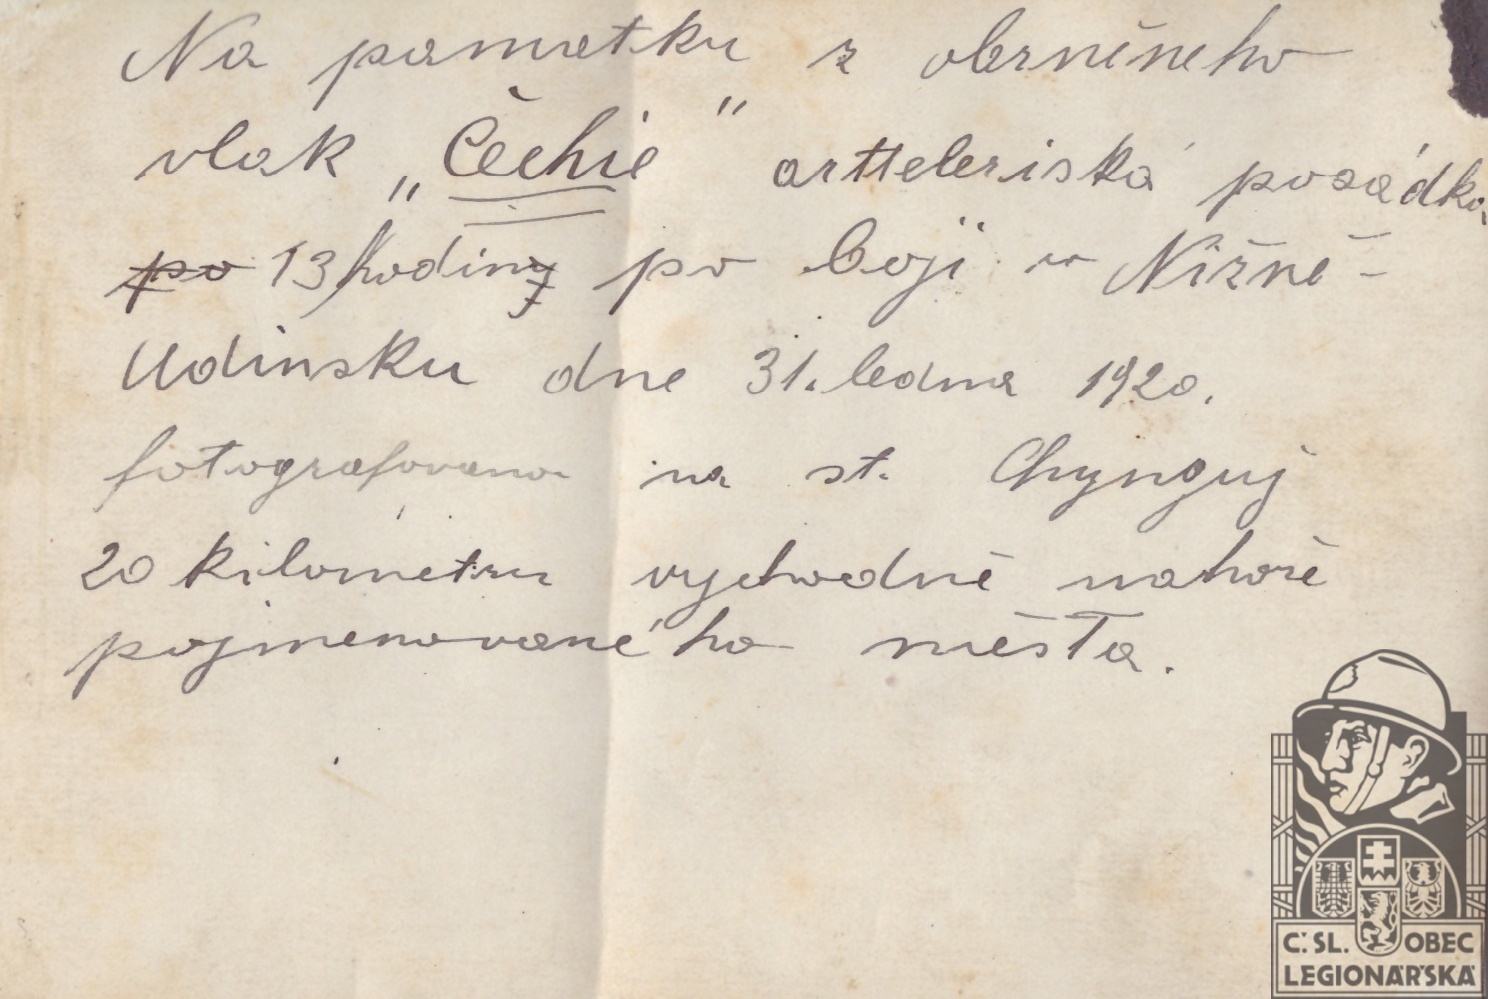 Na pamatku z obrněneho
vlak „Čechie" artteleriská posádka
po 13 hodiny po boji v Nižně-
Udinsku dne 31. ledna 1920.
fotografovano na st. Chynguj
20 kilometru vychodně nahoře
pojmenovaného města.
Č. SL. OBEC
LEGIONÁŘSKÁ